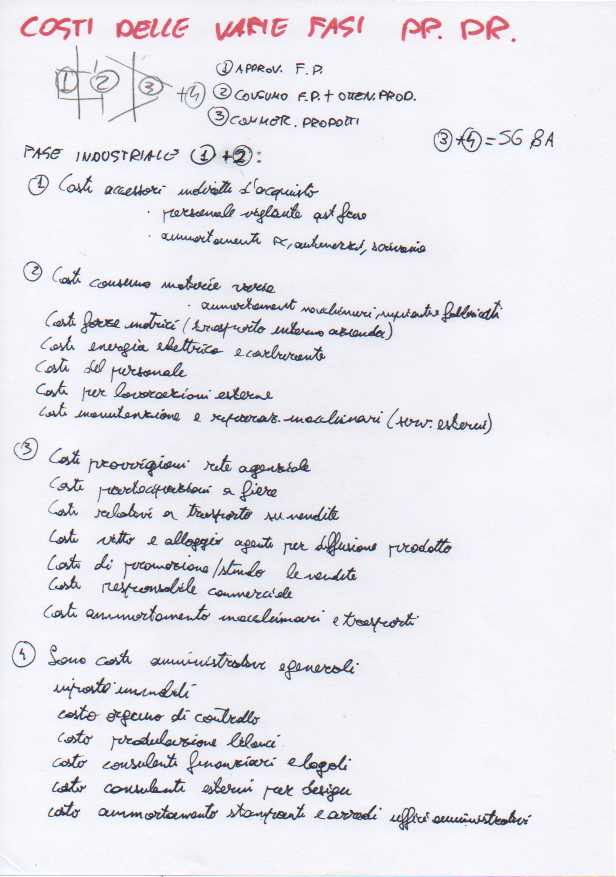 COSTI DELLE VARIE FASI PR. PR.
1 2 3 +4
① APPROV. F.P.
② CONSUMO F.P. + OTTEN. PROD.
③ COMMER. PRODOTTI
③+④ = SG BA
FASE INDUSTRIALE ①+②:
① Costi accessori indiretti d'acquisto
· personale vigilante
· ammortamento PC, automezzi, scrivania
② Costi consumo materie varie
· ammortamenti macchinari, impianti e fabbricati
Costi forze motrici (trasporto interno azienda)
Costi energia elettrica e carburante
Costi del personale
Costi per lavorazioni esterne
Costi manutenzione e riparaz. macchinari (serv. esterni)
③ Costi provvigioni rete agenziale
Costi partecipazioni a fiere
Costi relativi a trasporto su vendite
Costi vitto e alloggio agenti per diffusione prodotto
Costi di promozione/studio le vendite
Costi responsabile commerciale
Costi ammortamento macchinari e trasporti
④ Sono costi amministrativi e generali
imposte immobili
costo organo di controllo
costo produlazione bilanci
costo consulenti finanziari e legali
costo consulenti esterni per design
costo ammortamento stampanti e arredi uffici amministrativi